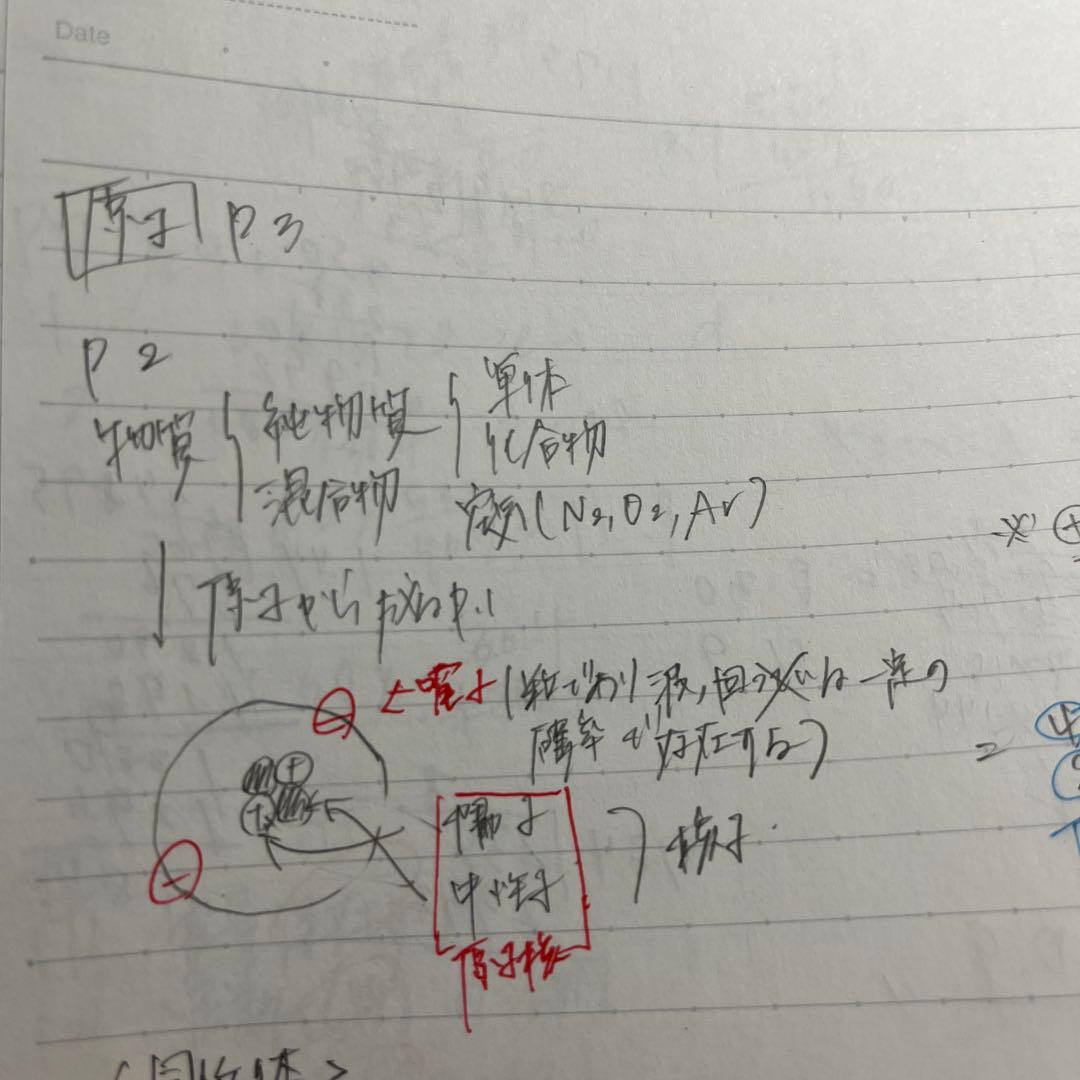 Date
原子 P3
P2
物質 純物質 単体
化合物
混合物 空気(N2,O2,Ar)
↓ 原子から成る P.1
※ +
←電子(粒であり波, 一定の
確率で存在する)
=
+ +
陽子
中性子
核子
- -
原子核
<同位体>